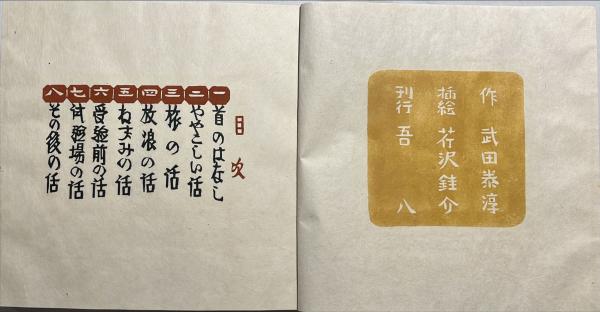 作 武田泰淳
挿絵 芹沢銈介
刊行 吾八
目次
一 首のはなし
二 ややこしい話
三 旅の話
四 放浪の話
五 ねずみの話
六 受験前の話
七 試験場の話
八 その後の話